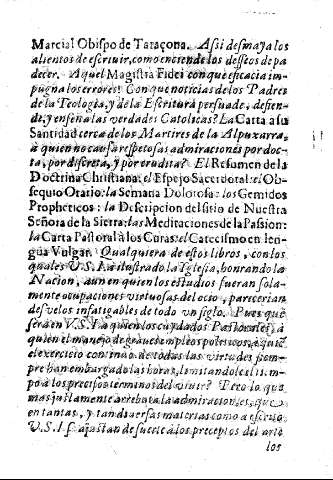 Marcial Obispo de Taraçona. Assi desmaya los
alientos de escriuir, como enciende los desseos de pa
decer. Aquel Magistra Fidei con que eficacia im-
pugna los errores! Con que noticias de los Padres
de la Teologia, y de la Escritura persuade, defien-
de, y enseña las verdades Catolicas? La Carta a su
Santidad cerca de los Martires de la Alpuxarra,
a quien no causa respetosas admiraciones por doc-
ta, por discreta, y por erudita? El Resumen de la
Doctrina Christiana: el Espejo Sacerdotal: el Ob-
sequio Oratio: la Semana Dolorosa: los Gemidos
Propheticos: la Descripcion del sitio de Nuestra
Señora de la Sierra: las Meditaciones de la Passion:
la Carta Pastoral à los Curas: el Catecismo en len
gua Vulgar. Qualquiera de estos libros, con los
quales V.S.I. à ilustrado la Iglesia, honrando la
Nacion, aun en quien los estudios fueran sola-
mente ocupaciones virtuosas del ocio, parecerian
desvelos infatigables de todo vn siglo. Pues que
serà en V.S.I. a quien los cuydados Pastorales, à
quien el manejo de graues empleos politicos, à quiẽ
el exercicio continuo de todas las virtudes siem-
pre han embargado las horas, limitandole el tiem-
po à los precisos terminos del viuir? Pero lo que
mas justamente arrebata la admiracion es, que
en tantas, y tan diuersas materias como à escrito
V.S.I. se ajustan de suerte à los preceptos del arte
los